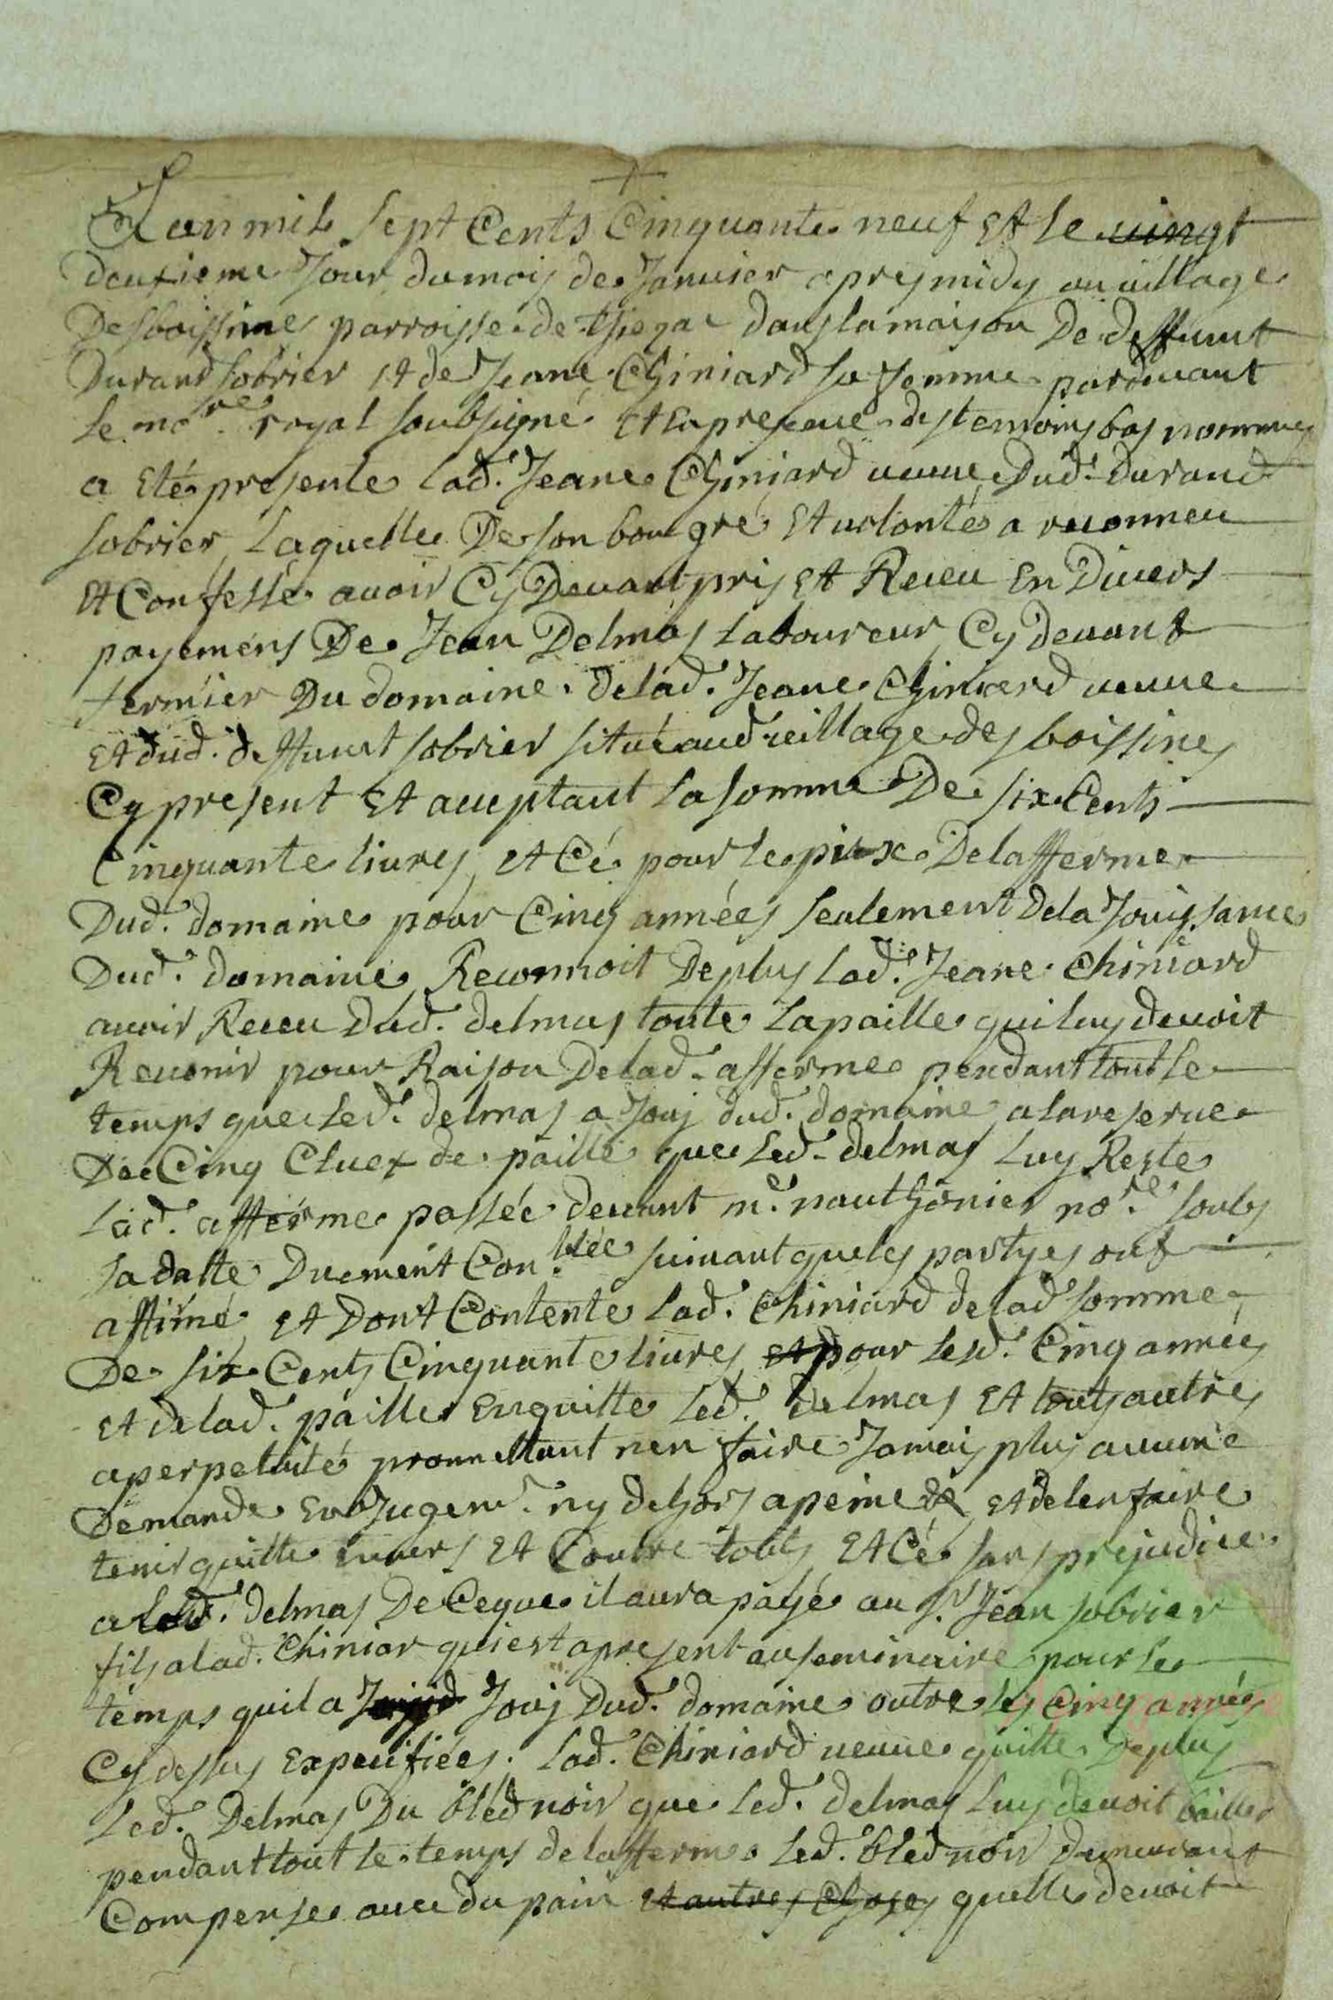 L'an mil sept Cents Cinquante neuf et le vingt
deuxieme Jour du mois de Janvier apres midy au village
Desboissines parroisse de thiezac dans la maison De deffunt
Durand Sobrier et de Jeane Chiniard sa femme pardevant
le no.re royal soubsigné et En presence des temoins bas nommes
a Eté presente lad. Jeane Chiniard veuve Dud. Durand
Sobrier, Laquelle De son bon gré et volonté a reconneu
et Confessé avoir Cy Devant pris et Receu En Divers
payemens De Jean Delmas Laboureur, Cy devant
fermier Du domaine de lad. Jeane Chiniard veuve
et dud. deffunt Sobrier situé aud. veillage des boissines
Cy present et acceptant La somme De six Cents
Cinquante livres, et Cé pour le prix De lafferme
Dud. domaine pour Cinq années seulement De la Jouissance
Dud. domaine, Reconnoit De plus lad.e Jeane Chiniard
avoir Receu Dud. delmas toute La paille qui luy devoit
Revenir pour Raison De lad. afferme pendant tout le
temps que led. delmas a Jouj dud. domaine a la reserve
De Cinq Cluex de paille que led. delmas Luy Reste
Lad. afferme passée devant m.e nauthonier no.re soubs
sa datte Duement Con.llée suivant que les partyes ont
affirmé, et Dont Contente lad. Chiniard de lad. somme
De six Cents Cinquante livres et pour lesd. Cinq années
et de lad. paille En quitte led. delmas et touts autres
a perpetuité promettant nen faire Jamais plus aucune
Demande En Jugem.t ny dehors a peine et de len faire
tenir quitte Envers et Contre touts et Cé sans prejudice
aud. delmas De Ceque il aura payé au s.r Jean Sobrier
fils a lad. Chiniar qui est apresent au seminaire pour le
temps quil a Jouj Dud. domaine outre les Cinq années
Cy dessus Expecifiées. lad. Chiniard veuve quitte De plus
Led. Delmas Du bléd noir que led. delmas luy devoit bailler
pendant tout le temps de lafferme led. bléd noir demeurant
Compense avec du pain et autres Choses quelle devoit